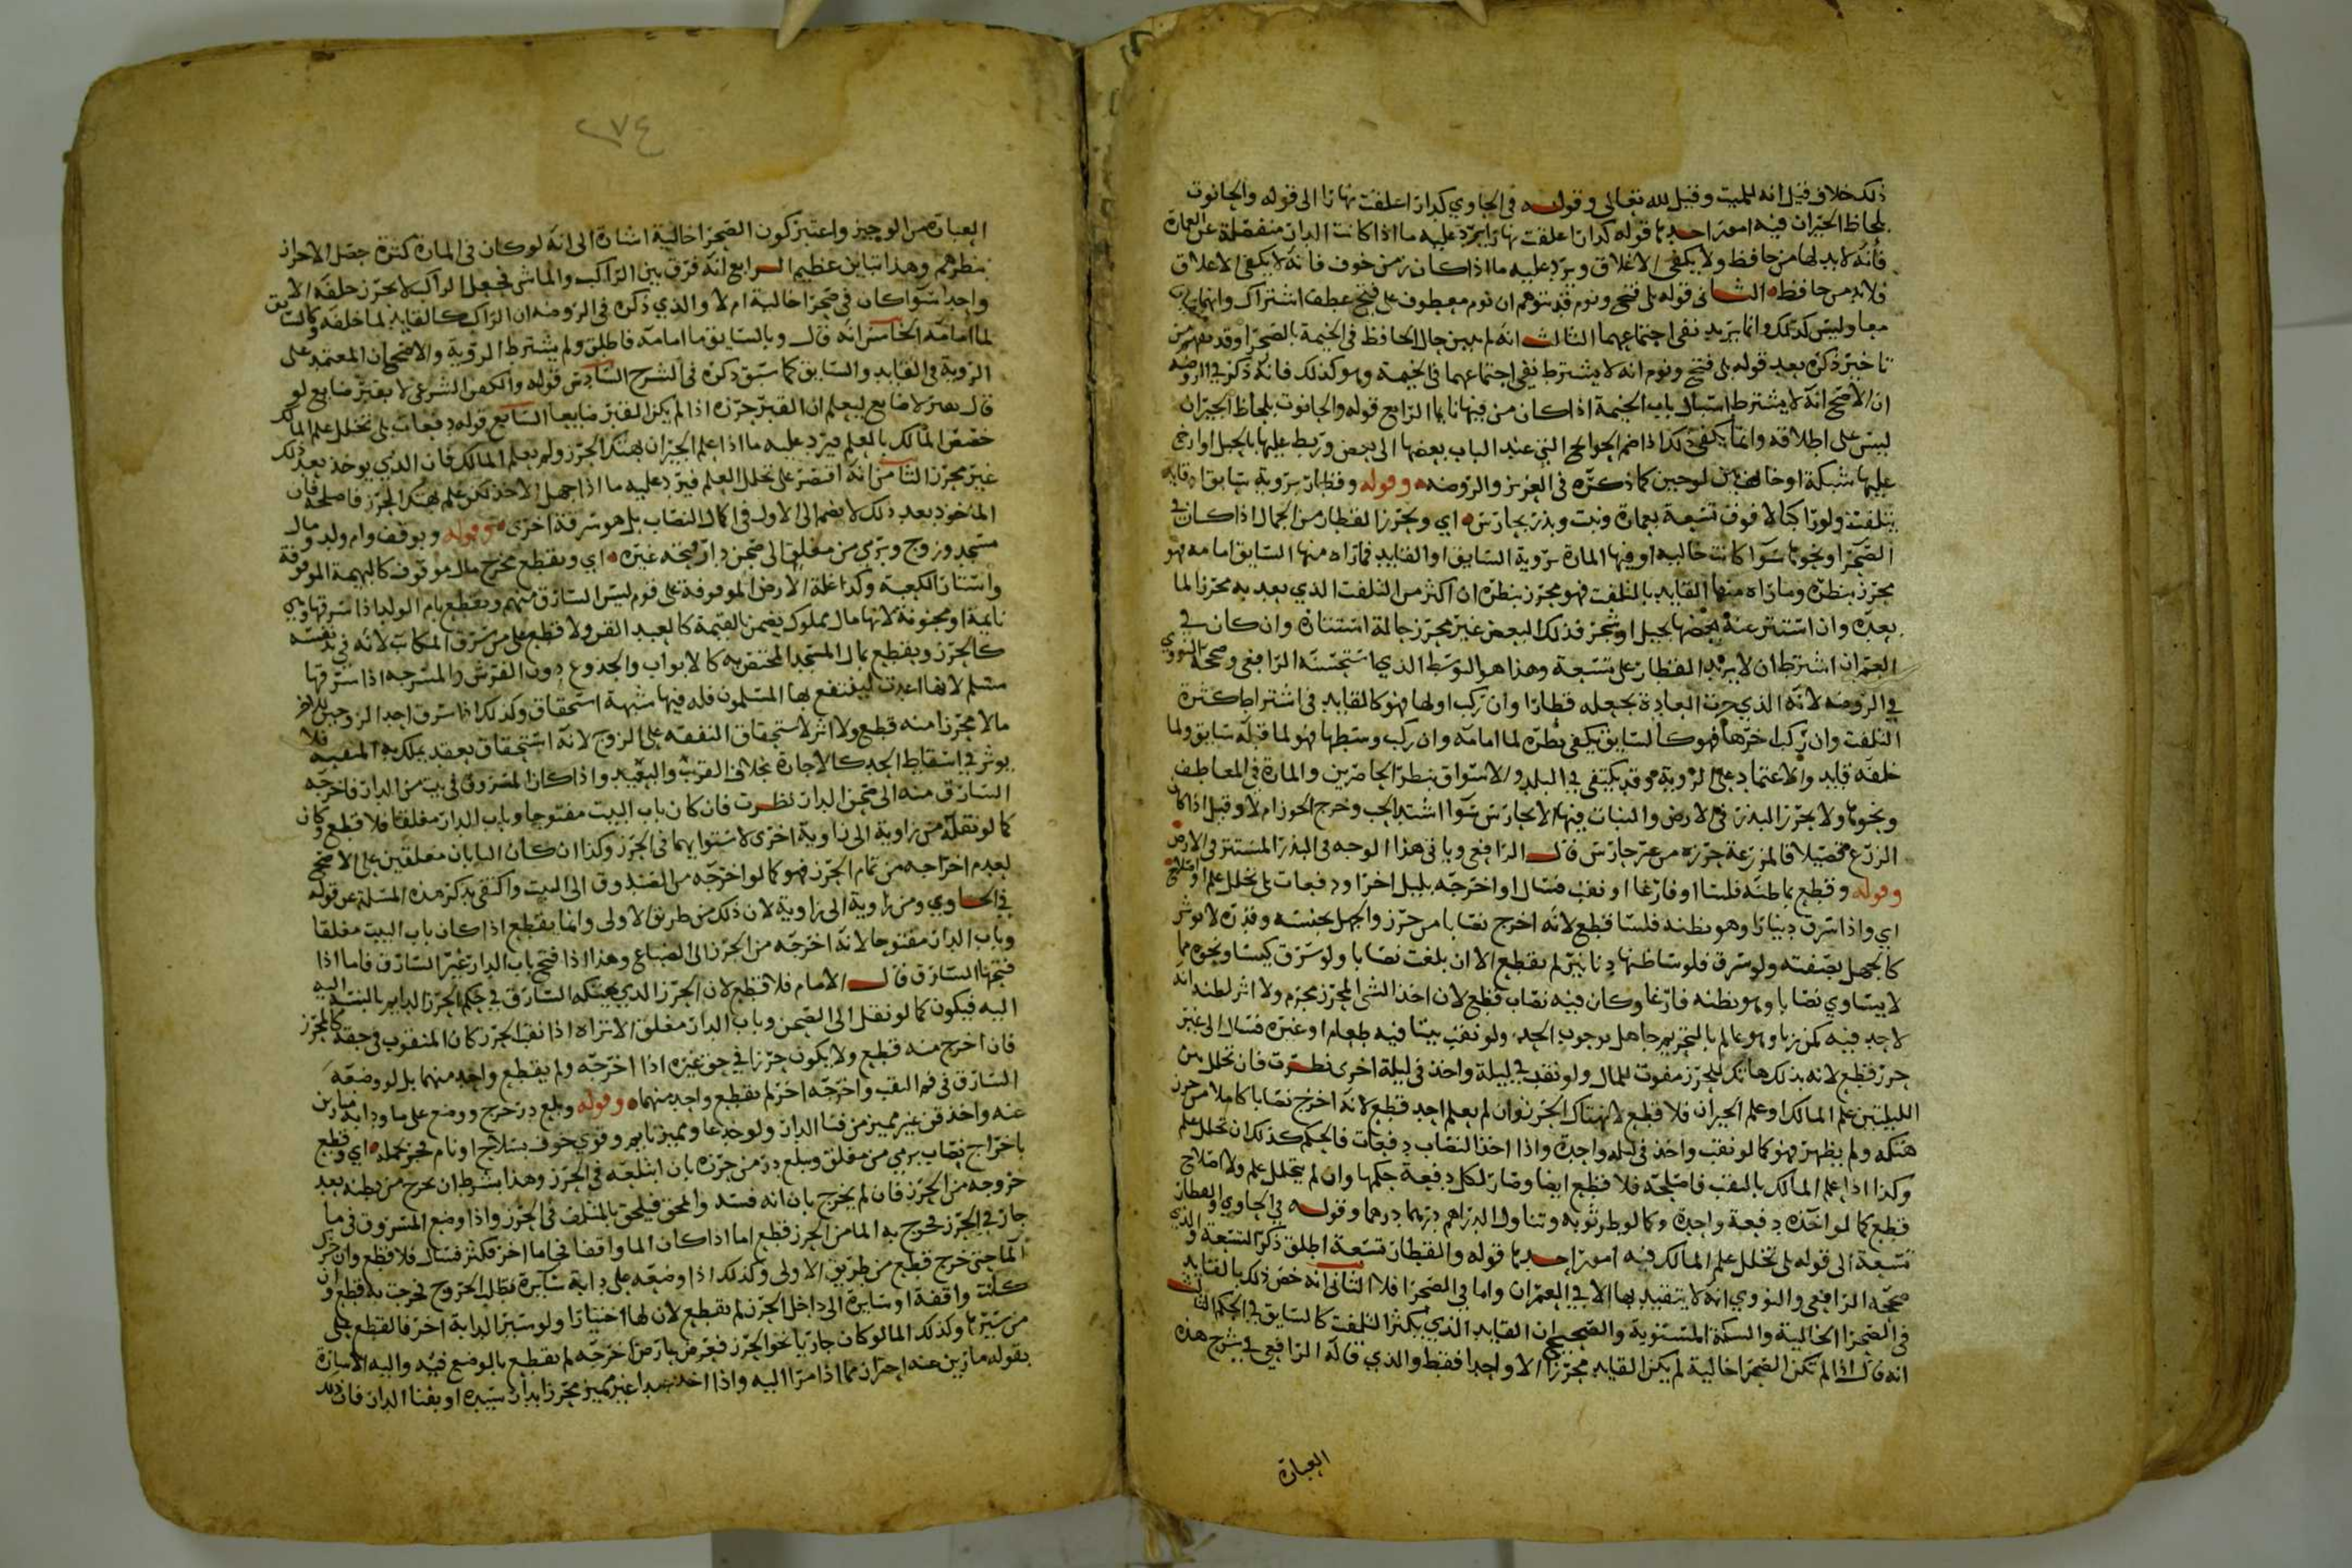 ذلك خلاف قيل انه للميت وقيل لله تعالى وقوله في الحاوي كدار اغلقت نهارا الى قوله والحانوت
بلحاظ الجيران فيه امور احدها قوله كدار اغلقت نهارا يرد عليه ما اذا كانت الدار منفصلة عن العمارة
فانه لا بد لها من حافظ ولا يكفي الاغلاق ويرد عليه ما اذا كان زمن خوف فانه لا يكفي الاغلاق
فلا بد من حافظ الثاني قوله بلى فتح ونوم قد يتوهم ان نوم معطوف على فتح عطف اشتراك وانهما
معا وليس كذلك وانما يريد نفي اجتماعهما الثالث انه لم يبين حال الحافظ في الخيمة بالصحرا وقد يفهم من
تاخير ذكره بعد قوله بلى فتح ونوم انه لا يشترط نفي اجتماعهما في الخيمة وهو كذلك فانه ذكر في الروضة
ان الاصح انه لا يشترط اسبال باب الخيمة اذا كان من فيها نايما الرابع قوله والحانوت بلحاظ الجيران
ليس على اطلاقه وانما يكفي ذلك اذا ضم الحوايج التي عند الباب بعضها الى بعض وربط عليها بالحبل او ارخى
عليها شبكة او خالف بين لوحين كما ذكره في العزيز والروضه وقوله وقطار برؤية سابق او قايد
يتلفت ولو راكبا لا فوق تسعة بعمارة ونبت وبذر بحارس اي ويحرز القطار من الجمال اذا كان في
الصحرا ونحوها سوا كانت خالية او فيها المارة برؤية السايق او القايد فما راه منها السايق امامه فهو
محرز بنظره وما راه منها القايد بالتلفت فهو محرز بنظره ان اكثر من التلفت الذي يعد به محرزا لما
بعده وان استتر عنه بعضها بجبل او شجر فذلك البعض غير محرز حالة استتاره وان كان في
العمران اشترط ان لا يزيد القطار على تسعة وهذا هو التوسط الذي استحسنه الرافعي وصححه النووي
في الروضه لانه الذي جرت العادة بجعله قطارا وان ركب اولها فهو كالقايد في اشتراط كثرة
التلفت وان ركب اخرها فهو كالسايق يكفي نظره لما امامه وان ركب وسطها فهو لما قبله سايق ولما
خلفه قايد والاعتماد على الرؤية وقد يكتفي في البلد والاسواق بنظر الحاضرين والمارة في المعاطف
ونحوها ولا يحرز البذر في الارض والنبات فيها الا بحارس سوا اشتد الحب وخرج الجوز ام لا وقيل اذا كان
الزرع فصيلا فالمزرعة حرزه من غير حارس قال الرافعي وياتي هذا الوجه في البذر المستتر في الارض
وقوله وقطع بما ظنه فلسا او فارغا او نقب فسال او اخرجه بليل اخرا ودفعات بلى تخلل علم او اصلاح
اي واذا سرق دينارا وهو يظنه فلسا قطع لانه اخرج نصابا من حرز والجهل بجنسه وقدره لا يوثر
كالجهل بصفته ولو سرق فلوسا ظنها دنانير لم يقطع الا ان بلغت نصابا ولو سرق كيسا ونحوه مما
لا يساوي نصابا وهو يظنه فارغا وكان فيه نصاب قطع لان اخذ الشي المحرز محرم ولا اثر لظنه انه
لا حد فيه كمن زنا وهو عالم بالتحريم جاهل بوجوب الحد ولو نقب بيتا فيه طعام او غيره فسال الى غير
حرز قطع لانه بذلك هاتك للحرز مفوت للمال ولو نقب في ليلة واخذ في ليلة اخرى نظرت فان تخلل بين
الليلتين علم المالك او علم الجيران فلا قطع لانهتاك الحرز وان لم يعلم احد قطع لانه اخرج نصابا كاملا من حرز
هتكه ولم يظهر فهو كما لو نقب واخذ في ليله واحدة واذا اخذ النصاب دفعات فالحكم كذلك ان تخلل علم
وكذا اذا علم المالك بالنقب فاصلحه فلا قطع ايضا وصار لكل دفعة حكمها وان لم يتخلل علم ولا اصلاح
قطع كما لو اخذه دفعة واحدة وكما لو طر ثوبه وتناول الدراهم درهما درهما وقوله في الحاوي والقطار
تسعة الى قوله بلى تخلل علم المالك فيه امور احدها قوله والقطار تسعة اطلق ذكر التسعة والذي
صححه الرافعي والنووي انه لا يتقيد بها الا في العمران واما في الصحرا فلا الثاني انه خص ذلك بالقايد
في الصحرا الخالية والسكة المستوية والصحيح ان القايد الذي يكثر التلفت كالسايق في الحكم الثالث
انه قال اذا لم تكن الصحرا خالية لم يكن القايد محرزا الا واحدا فقط والذي قاله الرافعي في شرح هذه
العبارة
٢٧٤
العبارة من الوجيز واعتبر كون الصحرا خالية اشارة الى انه لو كان في المارة كثرة حصل الاحراز
بنظرهم وهذا تباين عظيم الرابع انه فرق بين الراكب والماشي فجعل الراكب لا يحرز خلفه الا
واحدا سوا كان في صحرا خالية ام لا والذي ذكره في الروضه ان الراكب كالقايد لما خلفه وكالسايق
لما امامه الخامس انه قال وبالسايق ما امامه فاطلق ولم يشترط الرؤية والاصح ان المعتمد على
الرؤية في القايد والسايق كما سبق ذكره في الشرح السادس قوله والكفن الشرعي لا بقبر ضايع لو
قال بقبر لا ضايع ليعلم ان القبر حرزه اذا لم يكن القبر ضايعا السابع قوله دفعات بلى تخلل علم المالك
خصص المالك بالعلم فيرد عليه ما اذا علم الجيران بهتك الحرز ولم يعلم المالك فان الذي يوخذ بعد ذلك
غير محرز الثامن انه اقتصر على تخلل العلم فيرد عليه ما اذا جهل الاخذ لكن علم بهتك الحرز فاصلحه فان
الماخوذ بعد ذلك لا يضم الى الاول في اكمال النصاب بل هو سرقة اخرى وقوله وبوقف وام ولد ومال
مسجد وزوج وبرمي من مغلق الى صحن دار فتحه غيره اي ويقطع مخرج مال موقوف كالبهيمة الموقوفة
واستار الكعبة وكذا غلة الارض الموقوفة على قوم ليس السارق منهم ويقطع بام الولد اذا سرقها وهي
نايمة او مجنونة لانها مال مملوك يضمن بالقيمة كالعبد القن ولا قطع على من سرق المكاتب لانه في يد نفسه
كالحر ويقطع بمال المسجد المختص به كالابواب والجذوع دون الفرش والمسرجه اذا سرقها
مسلم لانها اعدت لينتفع بها المسلمون فله فيها شبهة استحقاق وكذلك اذا سرق احد الزوجين للاخر
مالا محرزا منه قطع ولا اثر لاستحقاق النفقه على الزوج لانه استحقاق بعقد يملك به المنفعه فلا
يوثر في اسقاط الحد كالاجارة بخلاف القريب والبعيد واذا كان المسروق في بيت من الدار فاخرجه
السارق منه الى صحن الدار نظرت فان كان باب البيت مفتوحا وباب الدار مغلقا فلا قطع وكان
كما لو نقله من زاوية الى زاوية اخرى لاستوايهما في الحرز وكذا ان كان البابان مغلقين على الاصح
لعدم اخراجه من تمام الحرز فهو كما لو اخرجه من الصندوق الى البيت واكتفى بذكر هذه المسئلة عن قوله
في الحاوي ومن زاوية الى زاوية لان ذلك من طريق الاولى وانما يقطع اذا كان باب البيت مغلقا
وباب الدار مفتوحا لانه اخرجه من الحرز الى الضياع وهذا اذا فتح باب الدار غير السارق فاما اذا
فتحها السارق قال الامام فلا قطع لان الحرز الذي يهتكه السارق في حكم الحرز الدايم بالنسبة اليه
اليه فيكون كما لو نقل الى الصحن وباب الدار مغلق الا تراه اذا نقب الحرز كان المنقوب في حقه كالمحرز
فان اخرج منه قطع ولا يكون حرزا في حق غيره اذا اخرجه ولم يقطع واحد منهما بل لو وضعه
السارق في فم النقب واخرجه اخر لم يقطع واحد منهما وقوله وبلع در خرج ووضع على ما ودابه سارين
عنه واخذ قن غير مميز من فنا الدار ولو خدعا ومميز نايم وقوي خوف بسلاح او نام فخرجمله اي وقطع
باخراج نصاب برمي من مغلق وببلع در من حرزه بان ابتلعه في الحرز وهذا بشرط ان يخرج من بطنه بعد
خروجه من الحرز فان لم يخرج بان انه فسد وانمحق فيلحق بالمتلف في الحرز واذا وضع المسروق في ما
جار في الحرز فخرج به الما من الحرز قطع اما اذا كان الما واقفا في اما اخر فكثر فسال فلا قطع وان حرك
الما حتى خرج قطع من طريق الاولى وكذلك اذا وضعه على دابة سايرة تطلب الخروج فخرجت به قطع وان
كانت واقفة او سايرة الى داخل الحرز لم يقطع لان لها اختيارا ولو سير الدابة اخر فالقطع على
من سيرها وكذلك الما لو كان جاريا نحو الحرز فعرض عارض اخرجه لم يقطع بالوضع فيه واليه الاشارة
بقوله مارين عنه احتراز عما اذا مرا اليه واذا اخذ عبدا غير مميز محرزا بدار سيده او بفنا الدار فان ذلك